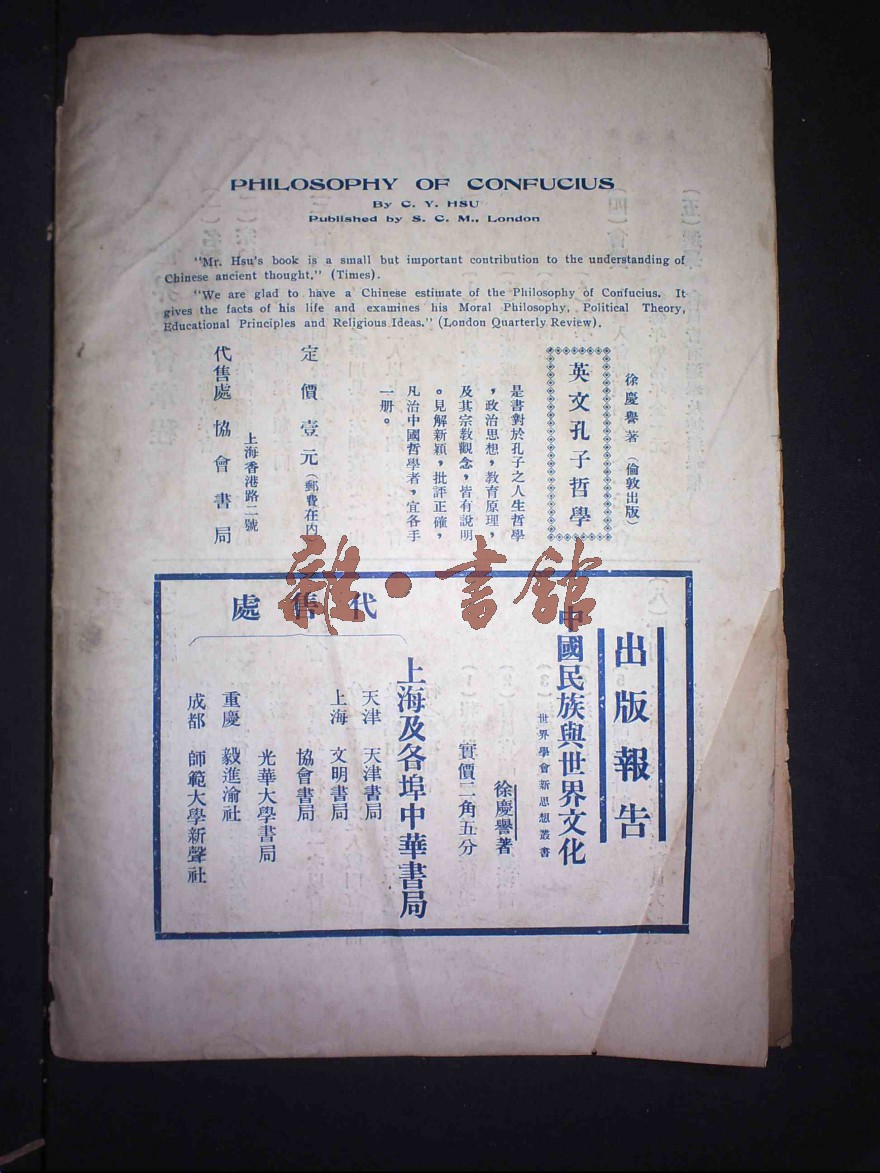 PHILOSOPHY OF CONFUCIUS
By C. Y. HSU
Published by S. C. M., London
"Mr. Hsu's book is a small but important contribution to the understanding of
Chinese ancient thought." (Times).
"We are glad to have a Chinese estimate of the Philosophy of Confucius. It
gives the facts of his life and examines his Moral Philosophy, Political Theory,
Educational Principles and Religious Ideas." (London Quarterly Review).
徐慶譽著(倫敦出版)
英文孔子哲學
是書對於孔子之人生哲學
,政治思想,教育原理,
及其宗教觀念,皆有說明
。見解新穎,批評正確,
凡治中國哲學者,宜各手
一册。
定價壹元(郵費在內)
上海香港路二號
代售處 協會書局
雜·書館
出版報告
中國民族與世界文化
世界學會新思想叢書
徐慶譽著
實價二角五分
代售處
上海及各埠中華書局
天津 天津書局
上海 文明書局
協會書局
光華大學書局
重慶 毅進渝社
成都 師範大學新聲社